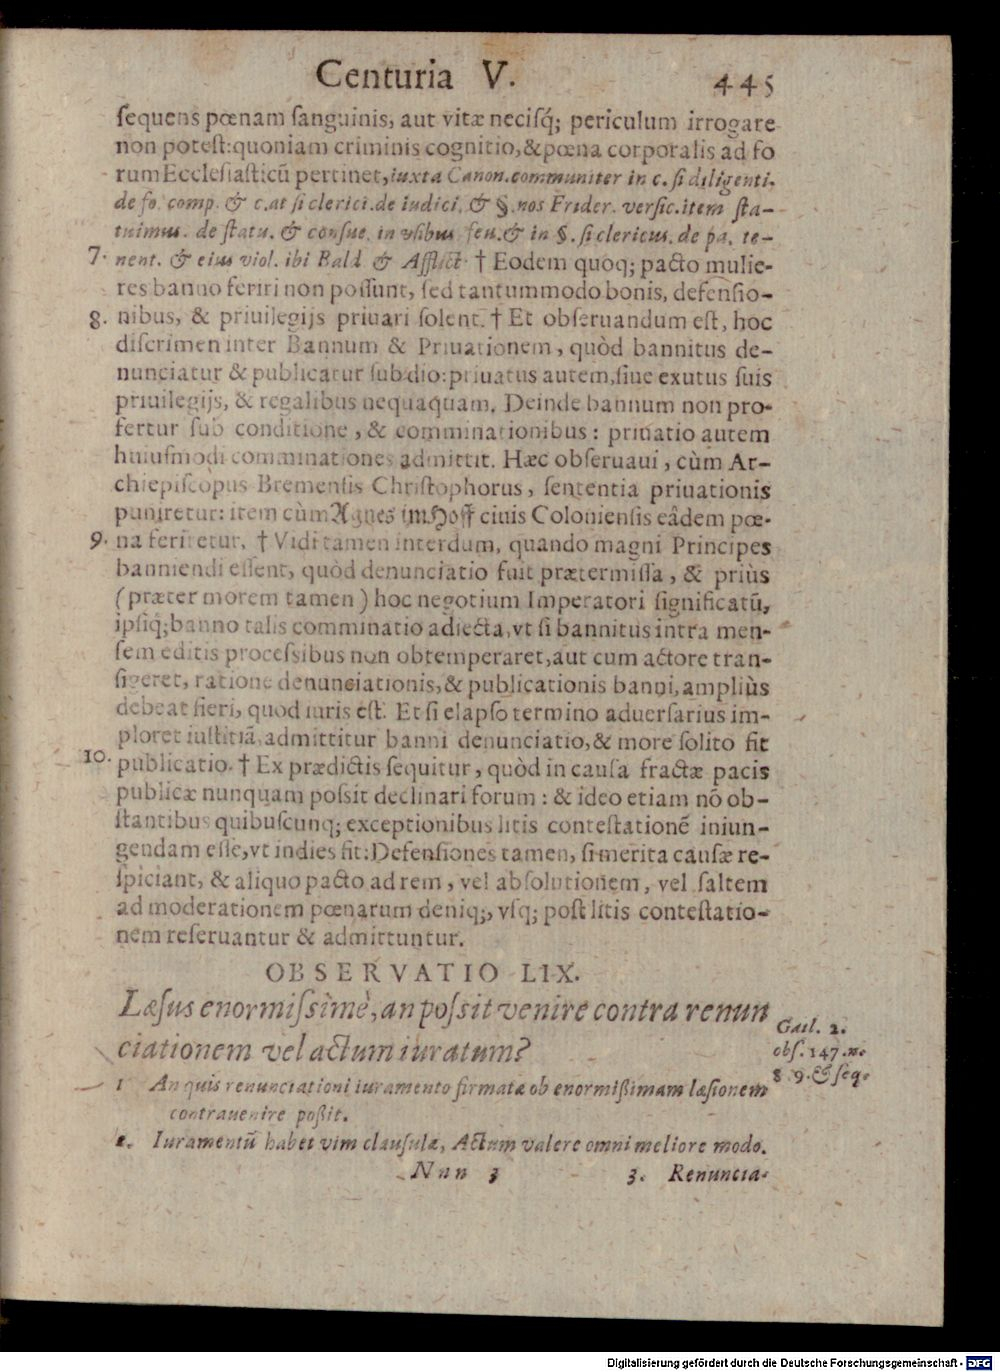 Centuria V. 445
ſequens pœnam ſanguinis, aut vitæ neciſq́; periculum irrogare
non poteſt:quoniam criminis cognitio,&pœna corporalis ad fo
rum Eccleſiaſticū pertinet,iuxta Canon.communiter in c. ſi diligenti.
de fo. comp. & c.at ſi clerici.de iudici. & §.nos Frider. verſic.item ſta-
tuimus. de ſtatu. & conſue. in vſibus feu.& in §. ſi clericus. de pa. te-
7. nent. & eius viol. ibi Bald & Afflict. † Eodem quoq; pacto mulie-
res banno feriri non poſſunt, ſed tantummodo bonis, defenſio-
8. nibus, & priuilegijs priuari ſolent. † Et obſeruandum eſt, hoc
diſcrimen inter Bannum & Priuationem, quòd bannitus de-
nunciatur & publicatur ſub dio:priuatus autem,ſiue exutus ſuis
priuilegijs, & regalibus nequaquam. Deinde bannum non pro-
fertur ſub conditione, & comminationibus: priuatio autem
huiuſmodi comminationes admittit. Hæc obſeruaui, cùm Ar-
chiepiſcopus Bremenſis Chriſtophorus, ſententia priuationis
puniretur: item cùm Agnes im Hoff ciuis Colonienſis eâdem pœ-
9. na feriretur. † Vidi tamen interdum, quando magni Principes
banniendi eſſent, quòd denunciatio fuit prætermiſſa, & priùs
(præter morem tamen) hoc negotium Imperatori ſignificatū,
ipſiq́;banno talis comminatio adiecta,vt ſi bannitus intra men-
ſem editis proceſsibus non obtemperaret,aut cum actore tran-
ſigeret, ratione denunciationis,& publicationis banni,ampliùs
debeat fieri, quod iuris eſt. Et ſi elapſo termino aduerſarius im-
ploret iuſtitiā,admittitur banni denunciatio,& more ſolito fit
10. publicatio. † Ex prædictis ſequitur, quòd in cauſa fractæ pacis
publicæ nunquam poſsit declinari forum: & ideo etiam nō ob-
ſtantibus quibuſcunq; exceptionibus litis conteſtationē iniun-
gendam eſſe,vt indies fit:Defenſiones tamen, ſi merita cauſæ re-
ſpiciant, & aliquo pacto ad rem, vel abſolutionem, vel ſaltem
ad moderationem pœnarum deniq;, vſq; poſt litis conteſtatio-
nem reſeruantur & admittuntur.
OBSERVATIO LIX.
Læſus enormiſsimè, an poſsit venire contra renun
ciationem vel actum iuratum?
Gail. 2.
obſ. 147.n.
8. 9. & ſeq.
1 An quis renunciationi iuramento firmatæ ob enormißimam læſionem
contrauenire poßit.
2. Iuramentū habet vim clauſulæ, Actum valere omni meliore modo.
Nnn 3 3. Renuncia-
Digitalisierung gefördert durch die Deutsche Forschungsgemeinschaft - DFG